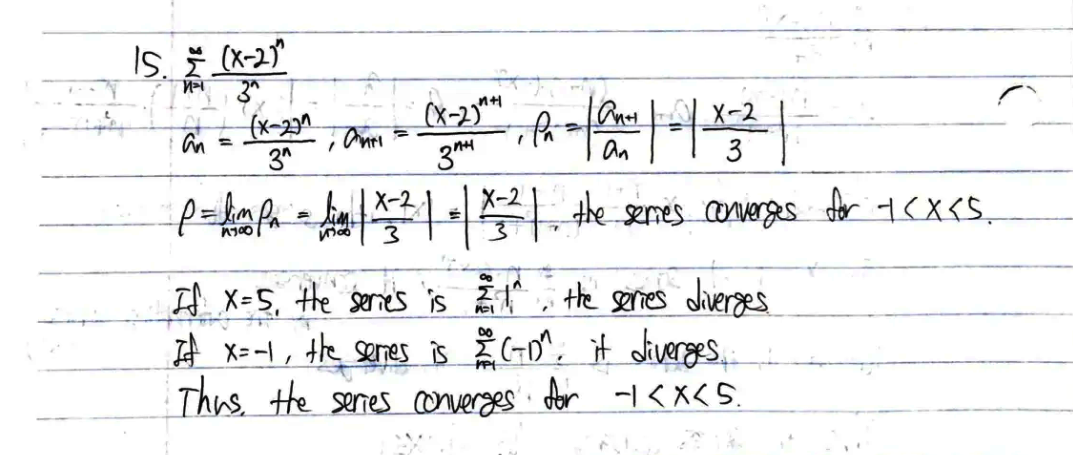 15. ∑_{n=1}^{∞} (x-2)^n / 3^n
a_n = (x-2)^n / 3^n , a_{n+1} = (x-2)^{n+1} / 3^{n+1} , ρ_n = |a_{n+1} / a_n| = |(x-2) / 3|
ρ = lim_{n→∞} ρ_n = lim_{n→∞} |(x-2) / 3| = |(x-2) / 3| . the series converges for -1<x<5.
If x=5, the series is ∑_{n=1}^{∞} 1^n , the series diverges.
If x=-1, the series is ∑_{n=1}^{∞} (-1)^n . it diverges.
Thus, the series converges for -1<x<5.